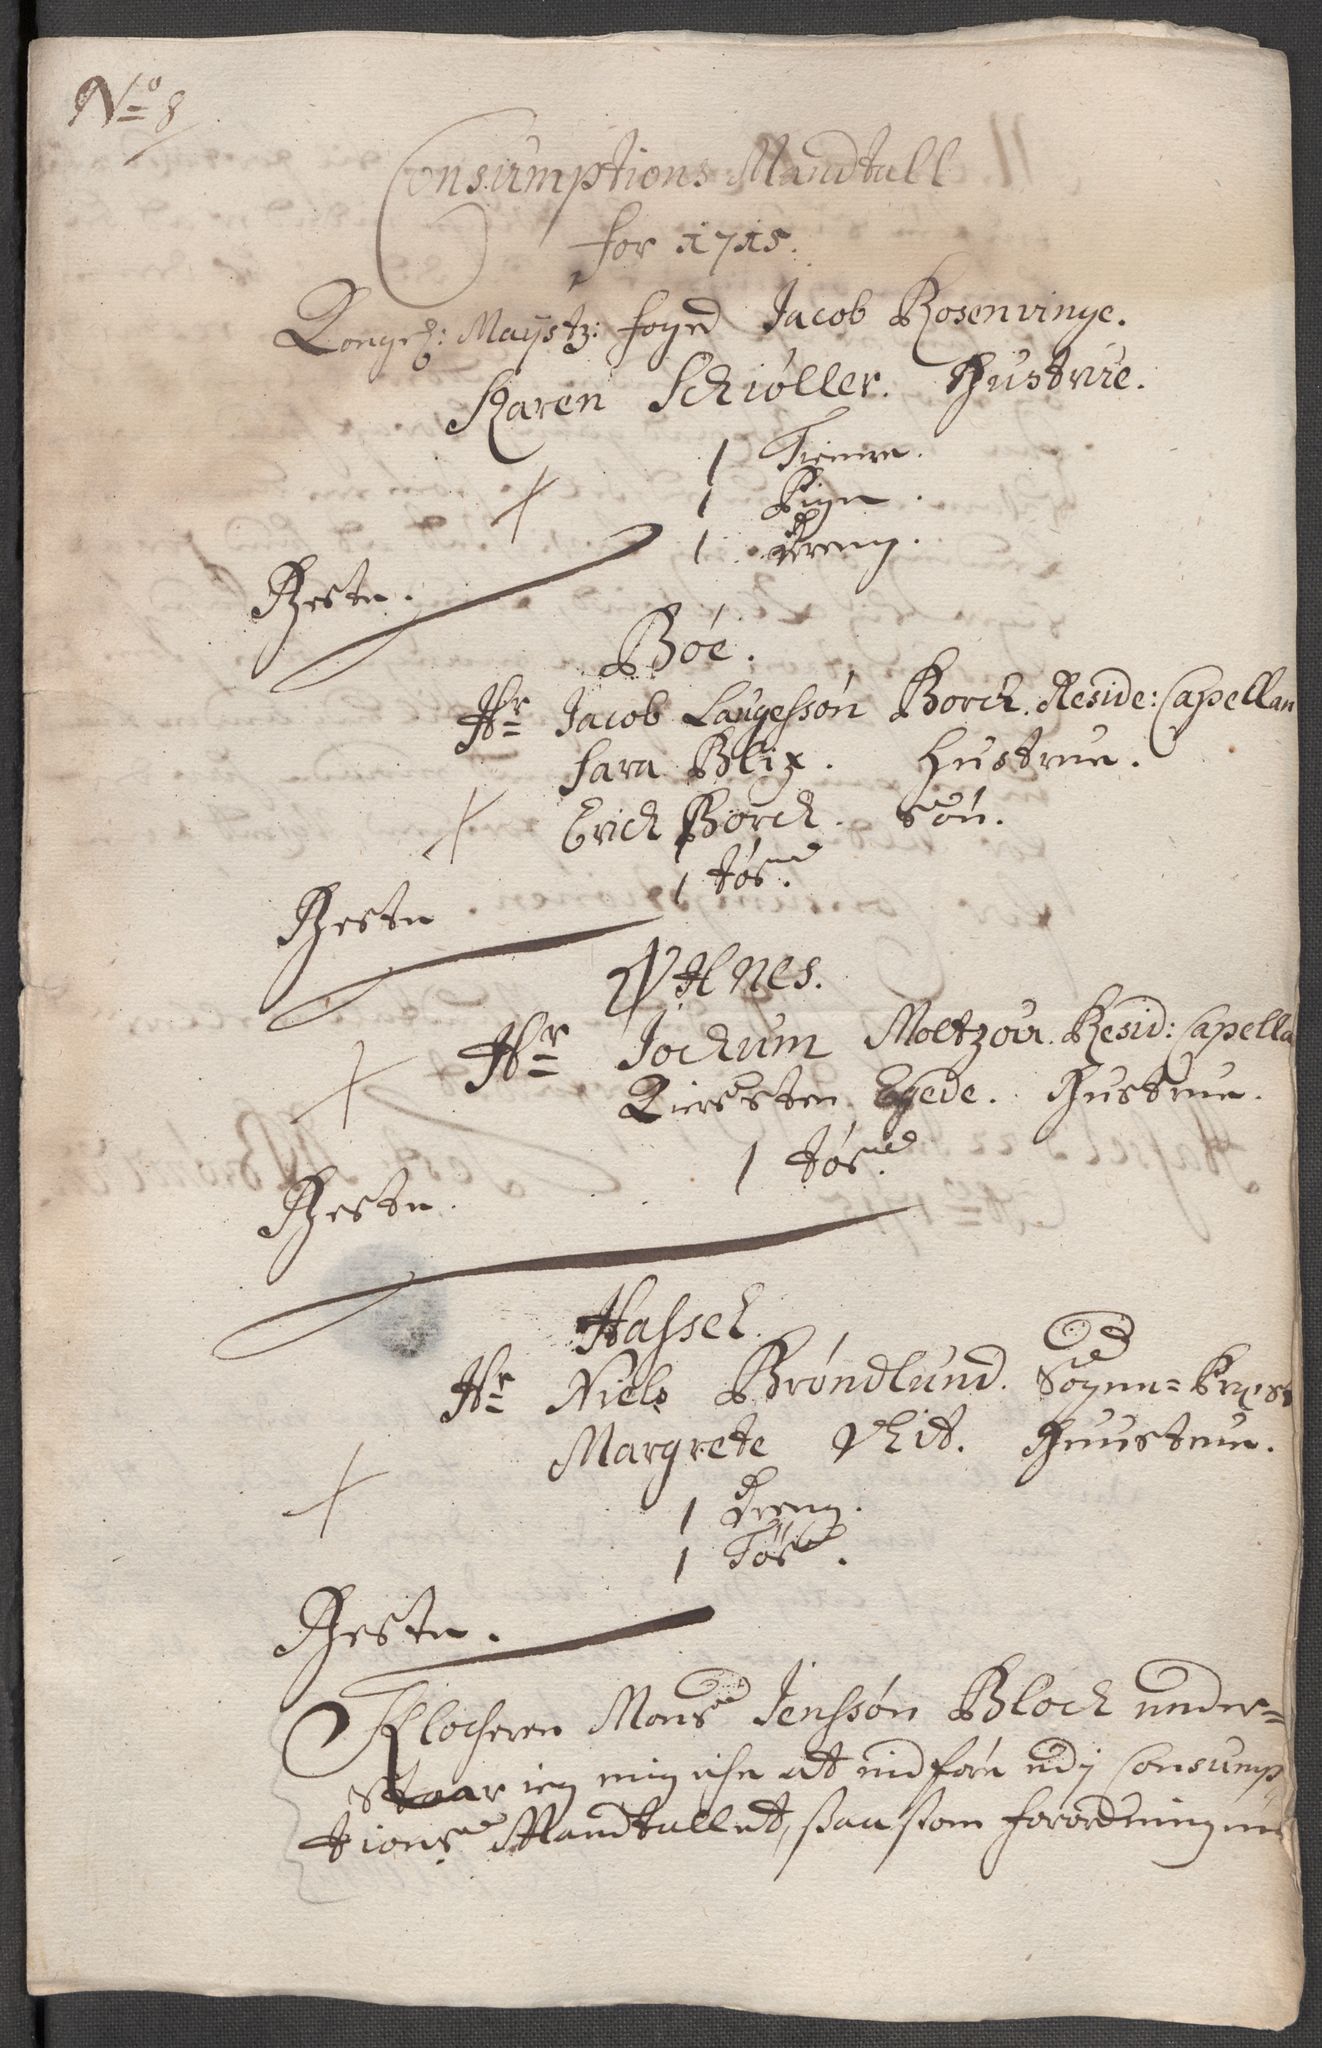 No 8
Consumptions Mandtall
for 1715.
Kongel: Mayestz: foged Jacob Rosenvinge.
Karen Schiøller. Hustrue.
1 Tienere.
1 Pige.
1 dreng.
Resten.
Bøe.
Hr Jacob Laugessøn Borch. Reside: Capellan
Sara Blix. Hustrue.
Erich Borch. Søn.
1 tøs.
Resten
Hr Jochum Moltzou. Resid: Capella
Kiersten Egede. Hustrue.
1 tøs.
Resten.
Hassel.
Hr Niels Brøndlund. Sogne=Præst
Margrete Hustrue.
1 dreng.
1 Tøs.
Resten.
Klocheren Mons Jenssøn Bloch under=
staar ieg mig iche at indføre udj Consump
tions Mandtallet, saasom forordningen